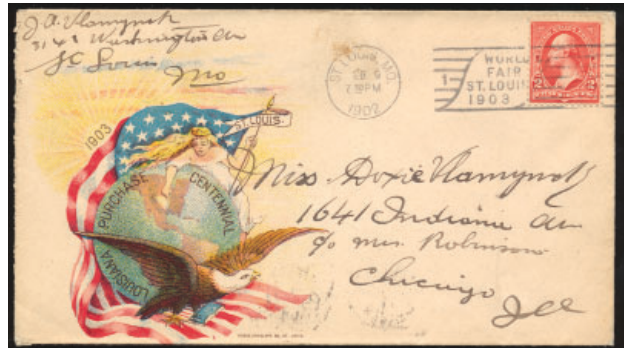 J.A. Vlamynck
3143 Washington Av
St Louis
Mo
ST. LOUIS, MO.
FEB 9
7 30PM
1902
1
WORLD'S
FAIR
ST. LOUIS
1903
2 2
1903
ST. LOUIS.
LOUISIANA PURCHASE CENTENNIAL
Miss Doxie Vlamynck
1641 Indiana Av
c/o Mrs. Robinson
Chicago
Ill